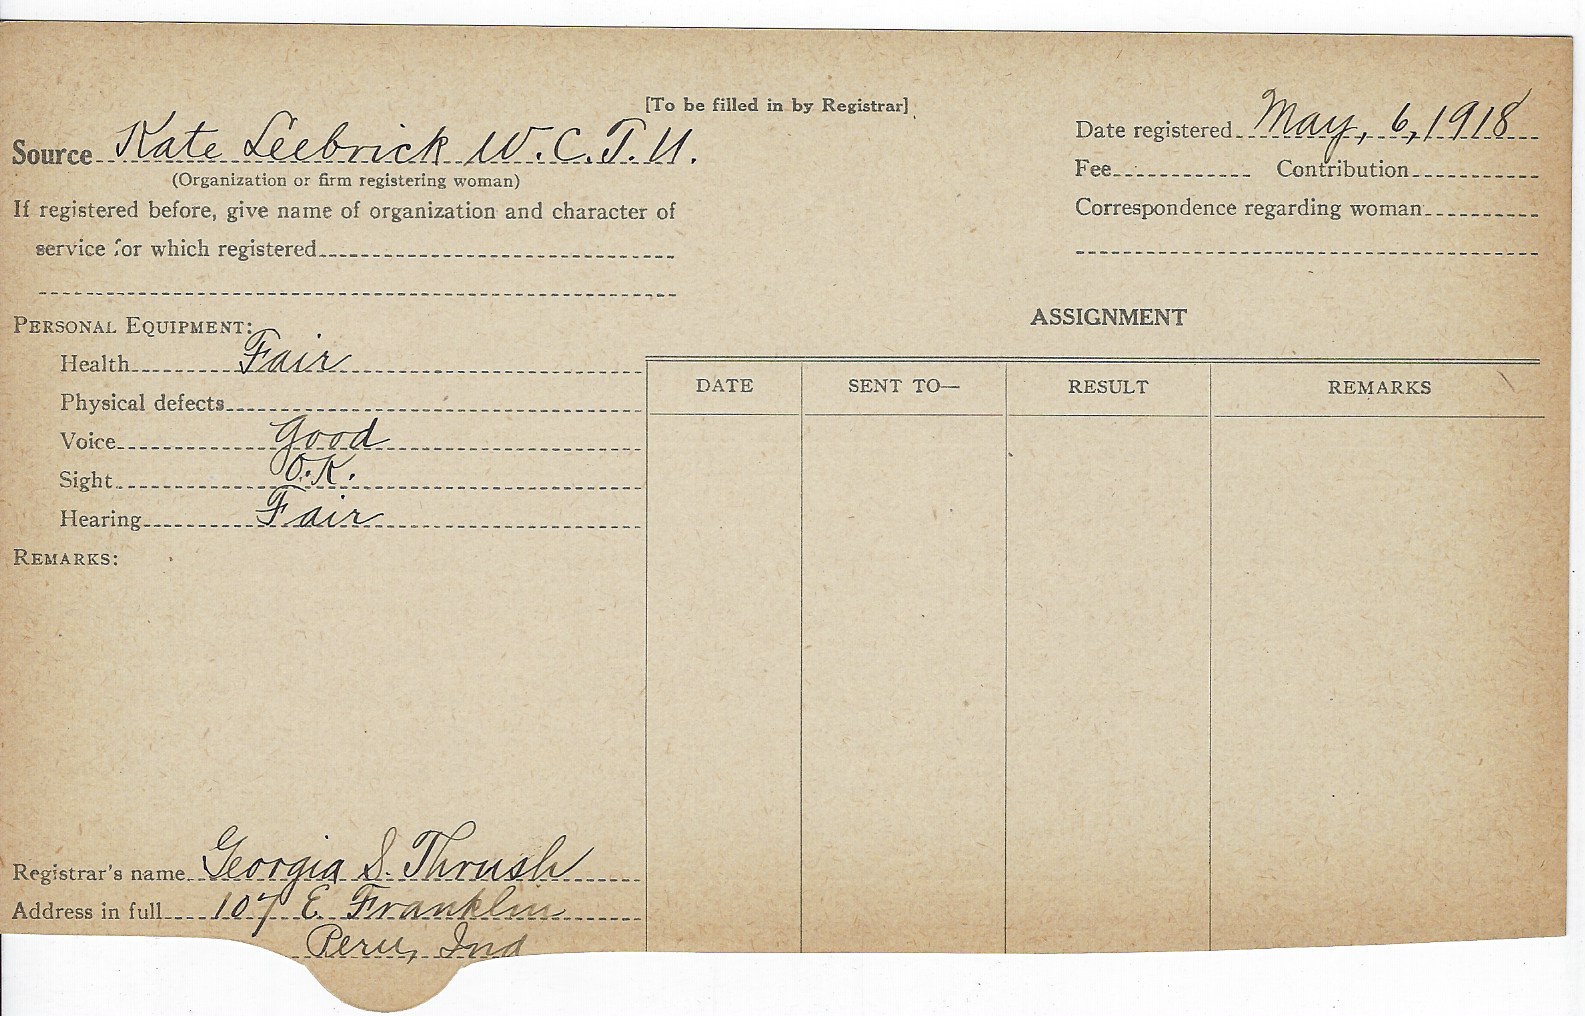 [To be filled in by Registrar]
Source Kate Leebrick W.C.T.U.
(Organization or firm registering woman)
If registered before, give name of organization and character of
service for which registered
Date registered May, 6, 1918
Fee Contribution
Correspondence regarding woman
PERSONAL EQUIPMENT:
Health Fair
Physical defects
Voice Good
Sight O.K.
Hearing Fair
REMARKS:
Registrar's name Georgia S. Thrush
Address in full 107 E Franklin
Peru, Ind
ASSIGNMENT
DATE SENT TO— RESULT REMARKS